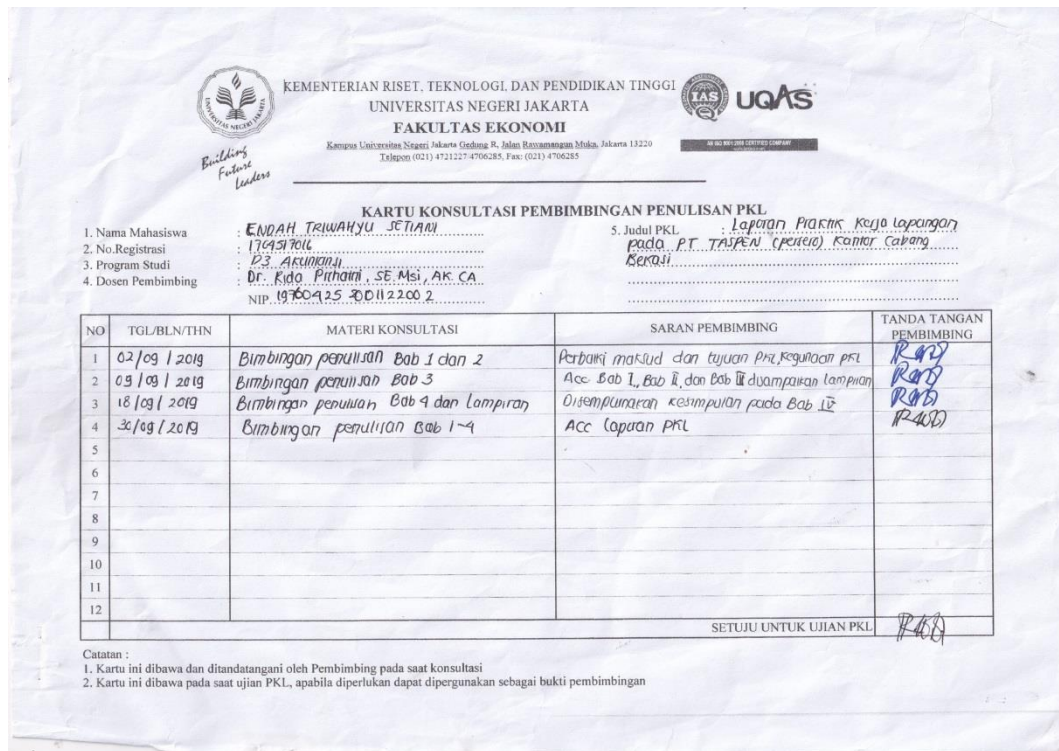 KEMENTERIAN RISET, TEKNOLOGI, DAN PENDIDIKAN TINGGI
UNIVERSITAS NEGERI JAKARTA
FAKULTAS EKONOMI
Kampus Universitas Negeri Jakarta Gedung R, Jalan Rawamangun Muka, Jakarta 13220
Telepon (021) 4721227/4706285, Fax: (021) 4706285
UNIVERSITAS NEGERI JAKARTA
Building
Future
Leaders
IAS
UQAS
AN ISO 9001:2008 CERTIFIED COMPANY
KARTU KONSULTASI PEMBIMBINGAN PENULISAN PKL
1. Nama Mahasiswa : ENDAH TRIWAHYU SETIANI
2. No.Registrasi : 1704517016
3. Program Studi : D3 Akuntansi
4. Dosen Pembimbing : Dr. Rida Prihatni, SE, Msi, AK. CA
NIP. 19760425 200112 200 2
5. Judul PKL : Laporan Praktik Kerja Lapangan
pada PT TASPEN (persero) Kantor Cabang
Bekasi
NO TGL/BLN/THN MATERI KONSULTASI SARAN PEMBIMBING TANDA TANGAN PEMBIMBING
1 02/09/2019 Bimbingan penulisan Bab 1 dan 2 Perbaiki maksud dan tujuan PKL, Kegunaan PKL
2 09/09/2019 Bimbingan penulisan Bab 3 Acc Bab I, Bab II, dan Bab III lampiran
3 18/09/2019 Bimbingan penulisan Bab 4 dan Lampiran Disempurnakan kesimpulan pada Bab IV
4 30/09/2019 Bimbingan penulisan Bab 1-4 Acc laporan PKL
5
6
7
8
9
10
11
12
SETUJU UNTUK UJIAN PKL
Catatan :
1. Kartu ini dibawa dan ditandatangani oleh Pembimbing pada saat konsultasi
2. Kartu ini dibawa pada saat ujian PKL, apabila diperlukan dapat dipergunakan sebagai bukti pembimbingan